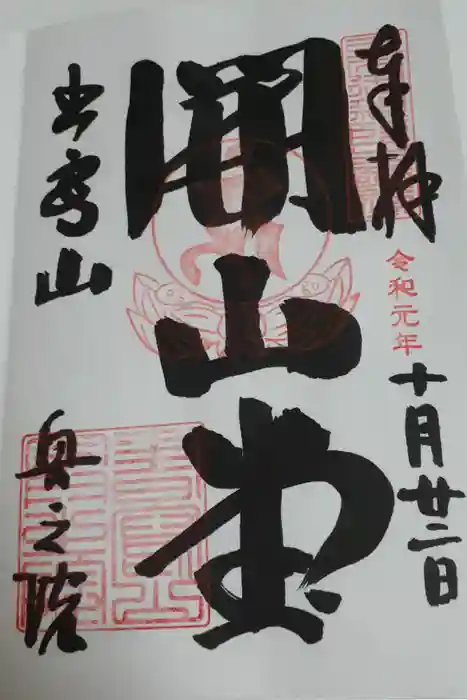 奉拝
令和元年
十月廿二日
開山堂
書寫山
奥之院